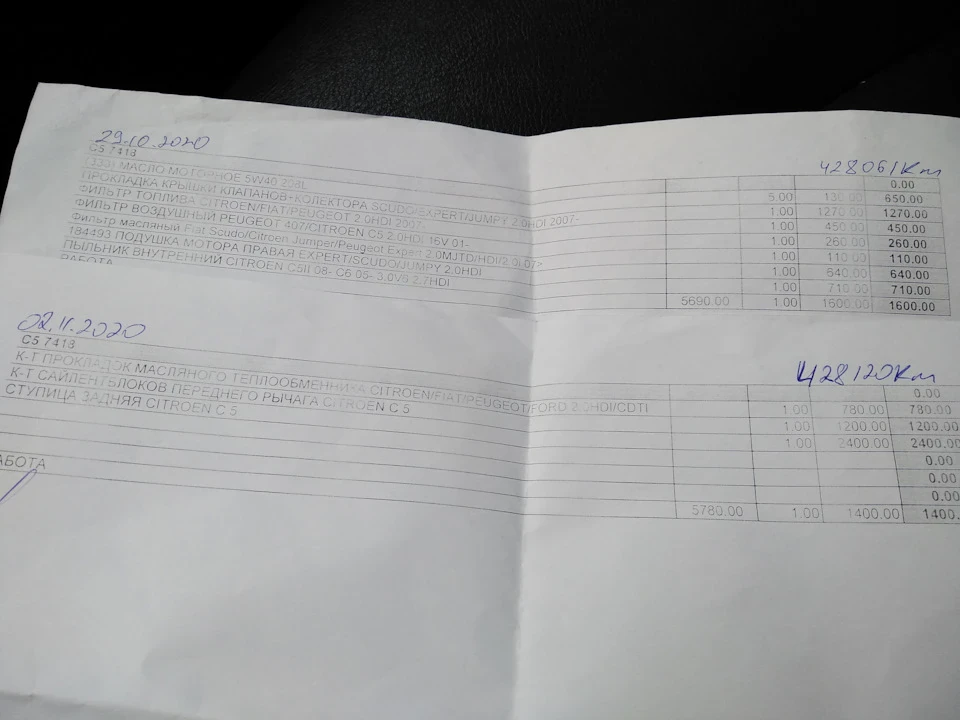 29.10.2020
428061Km
C5 7418 0.00
(333) МАСЛО МОТОРНОЕ 5W40 208L 5.00 130.00 650.00
ПРОКЛАДКА КРЫШКИ КЛАПАНОВ+КОЛЕКТОРА SCUDO/EXPERT/JUMPY 2.0HDI 2007- 1.00 1270.00 1270.00
ФИЛЬТР ТОПЛИВА CITROEN/FIAT/PEUGEOT 2.0HDI 2007- 1.00 450.00 450.00
ФИЛЬТР ВОЗДУШНЫЙ PEUGEOT 407/CITROEN C5 2.0HDI 16V 01- 1.00 260.00 260.00
Фильтр масляный Fiat Scudo/Citroen Jumper/Peugeot Expert 2.0MJTD/HDI/2.0i 07> 1.00 110.00 110.00
184493 ПОДУШКА МОТОРА ПРАВАЯ EXPERT/SCUDO/JUMPY 2.0HDI 1.00 640.00 640.00
ПЫЛЬНИК ВНУТРЕННИЙ CITROEN C5II 08- C6 05- 3.0V6 2.7HDI 1.00 710.00 710.00
РАБОТА 5690.00 1.00 1600.00 1600.00
02.11.2020
428120Km
C5 7418 0.00
К-Т ПРОКЛАДОК МАСЛЯНОГО ТЕПЛООБМЕННИХА CITROEN/FIAT/PEUGEOT/FORD 2.0HDI/CDTI 1.00 780.00 780.00
К-Т САЙЛЕНТБЛОКОВ ПЕРЕДНЕГО РЫЧАГА CITROEN C 5 1.00 1200.00 1200.00
СТУПИЦА ЗАДНЯЯ CITROEN C 5 1.00 2400.00 2400.00
0.00
0.00
0.00
АБОТА 5780.00 1.00 1400.00 1400.